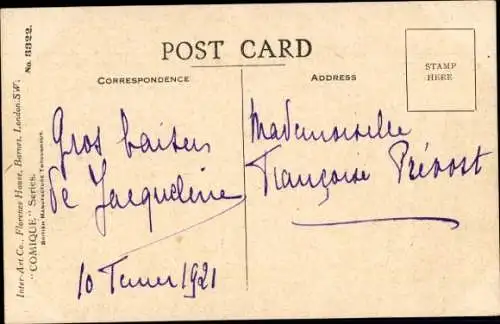 Inter-Art Co., Florence House, Barnes, London.S.W.
"COMIQUE" Series. No. 3322.
BRITISH MANUFACTURE THROUGHOUT.
POST CARD
CORRESPONDENCE
ADDRESS
STAMP
HERE
Gros baisers
de Jacqueline
10 1921
Mademoiselle
Françoise Prévost